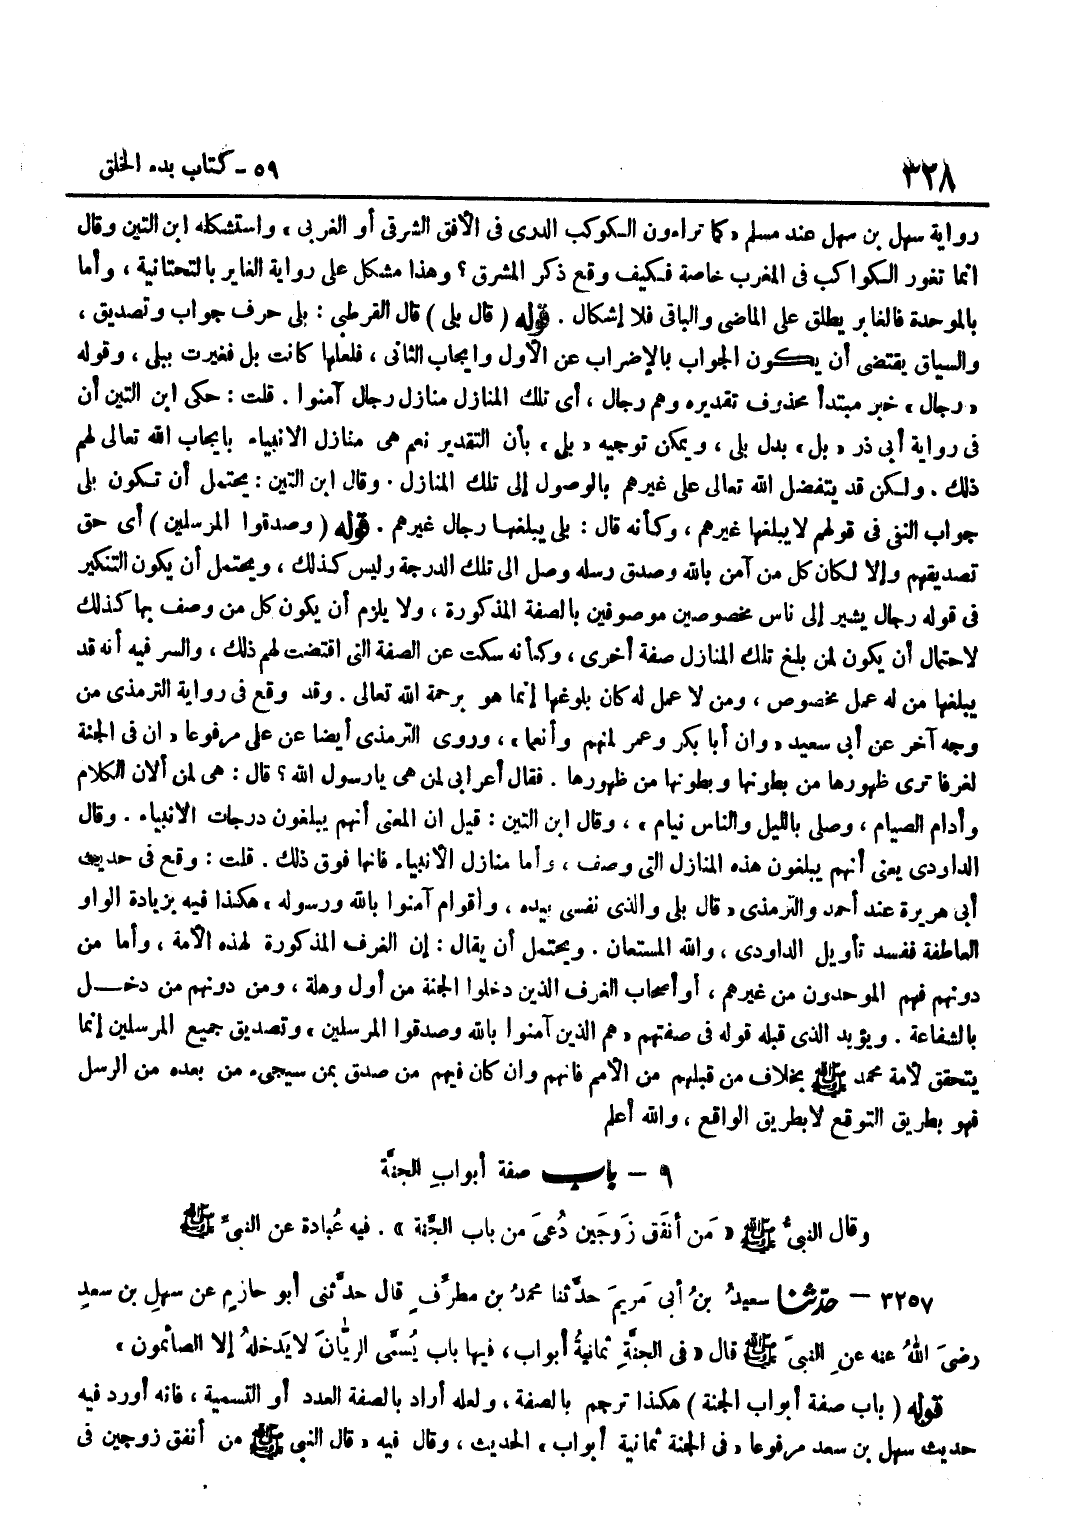 ٣٢٨
٥٩ - كتاب بدء الخلق
رواية سهل بن سهل عند مسلم « كما تراءون الكوكب الدرى فى الأفق الشرقى أو الغربى » واستشكله ابن التين وقال
انما تغور الكواكب فى المغرب خاصة فكيف وقع ذكر المشرق ؟ وهذا مشكل على رواية الغاير بالتحتانية ، وأما
بالموحدة فالغابر يطلق على الماضى والباقى فلا إشكال . قوله ( قال بلى ) قال القرطبى : بلى حرف جواب وتصديق ،
والسياق يقتضى أن يكون الجواب بالإضراب عن الأول وايجاب الثانى ، فلعلها كانت بل فغيرت ببلى ، وقوله
« رجال » خبر مبتدأ محذوف تقديره وهم رجال ، أى تلك المنازل منازل رجال آمنوا . قلت : حكى ابن التين أن
فى رواية أبى ذر « بل » بدل بلى ، ويمكن توجيه « بلى » بأن التقدير نعم هى منازل الانبياء بايجاب الله تعالى لهم
ذلك . ولكن قد يتفضل الله تعالى على غيرهم بالوصول إلى تلك المنازل . وقال ابن التين : يحتمل أن تكون بلى
جواب النفى فى قولهم لا يبلغها غيرهم ، وكأنه قال : بلى يبلغها رجال غيرهم . قوله ( وصدقوا المرسلين ) أى حق
تصديقهم وإلا لكان كل من آمن بالله وصدق رسله وصل الى تلك الدرجة وليس كذلك ، ويحتمل أن يكون التنكير
فى قوله رجال يشير إلى ناس مخصوصين موصوفين بالصفة المذكورة ، ولا يلزم أن يكون كل من وصف بها كذلك
لاحتمال أن يكون لمن بلغ تلك المنازل صفة أخرى ، وكأنه سكت عن الصفة التى اقتضت لهم ذلك ، والسر فيه أنه قد
يبلغها من له عمل مخصوص ، ومن لا عمل له كان بلوغها إنما هو برحمة الله تعالى . وقد وقع فى رواية الترمذى من
وجه آخر عن أبى سعيد « وان أبا بكر وعمر لمنهم وأنعما » ، وروى الترمذى أيضا عن على مرفوعا « ان فى الجنة
لغرفا ترى ظهورها من بطونها وبطونها من ظهورها . فقال أعرابى لمن هى يارسول الله ؟ قال : هى لمن ألان الكلام
وأدام الصيام ، وصلى بالليل والناس نيام » ، وقال ابن التين : قيل ان المعنى أنهم يبلغون درجات الانبياء . وقال
الداودى يعنى أنهم يبلغون هذه المنازل التى وصف ، وأما منازل الأنبياء فانها فوق ذلك . قلت : وقع فى حديث
أبى هريرة عند أحمد والترمذى « قال بلى والذى نفسى بيده ، وأقوام آمنوا بالله ورسوله » هكذا فيه بزيادة الواو
العاطفة ففسد تأويل الداودى ، والله المستعان . ويحتمل أن يقال : إن الغرف المذكورة لهذه الأمة ، وأما من
دونهم فهم الموحدون من غيرهم ، أو أصحاب الغرف الذين دخلوا الجنة من أول وهلة ، ومن دونهم من دخل
بالشفاعة . ويؤيد الذى قبله قوله فى صفتهم « هم الذين آمنوا بالله وصدقوا المرسلين » وتصديق جميع المرسلين إنما
يتحقق لأمة محمد ﷺ بخلاف من قبلهم من الأمم فانهم وان كان فيهم من صدق بمن سيجىء من بعده من الرسل
فهو بطريق التوقع لا بطريق الواقع ، والله أعلم
٩ - باب صفة أبوابِ الجنَّة
وقال النبىُّ ﷺ « مَن أنفَق زَوجَين دُعىَ من باب الجنَّة » . فيه عُبادة عن النبىِّ ﷺ
٣٢٥٧ - حدّثنا سعيدُ بنُ أبى مَريمَ حدَّثنا محمدُ بن مطرِّفٍ قال حدَّثنى أبو حازمٍ عن سهلِ بن سعدٍ
رضىَ اللهُ عنه عنِ النبىِّ ﷺ قال « فى الجنَّةِ ثمانيةُ أبواب ، فيها باب يُسمَّى الريَّانَ لا يَدخلهُ إلا الصائمون »
قوله ( باب صفة أبواب الجنة ) هكذا ترجم بالصفة ، ولعله أراد بالصفة العدد أو التسمية ، فانه أورد فيه
حديث سهل بن سعد مرفوعا « فى الجنة ثمانية أبواب » الحديث ، وقال فيه « قال النبى ﷺ من أنفق زوجين فى